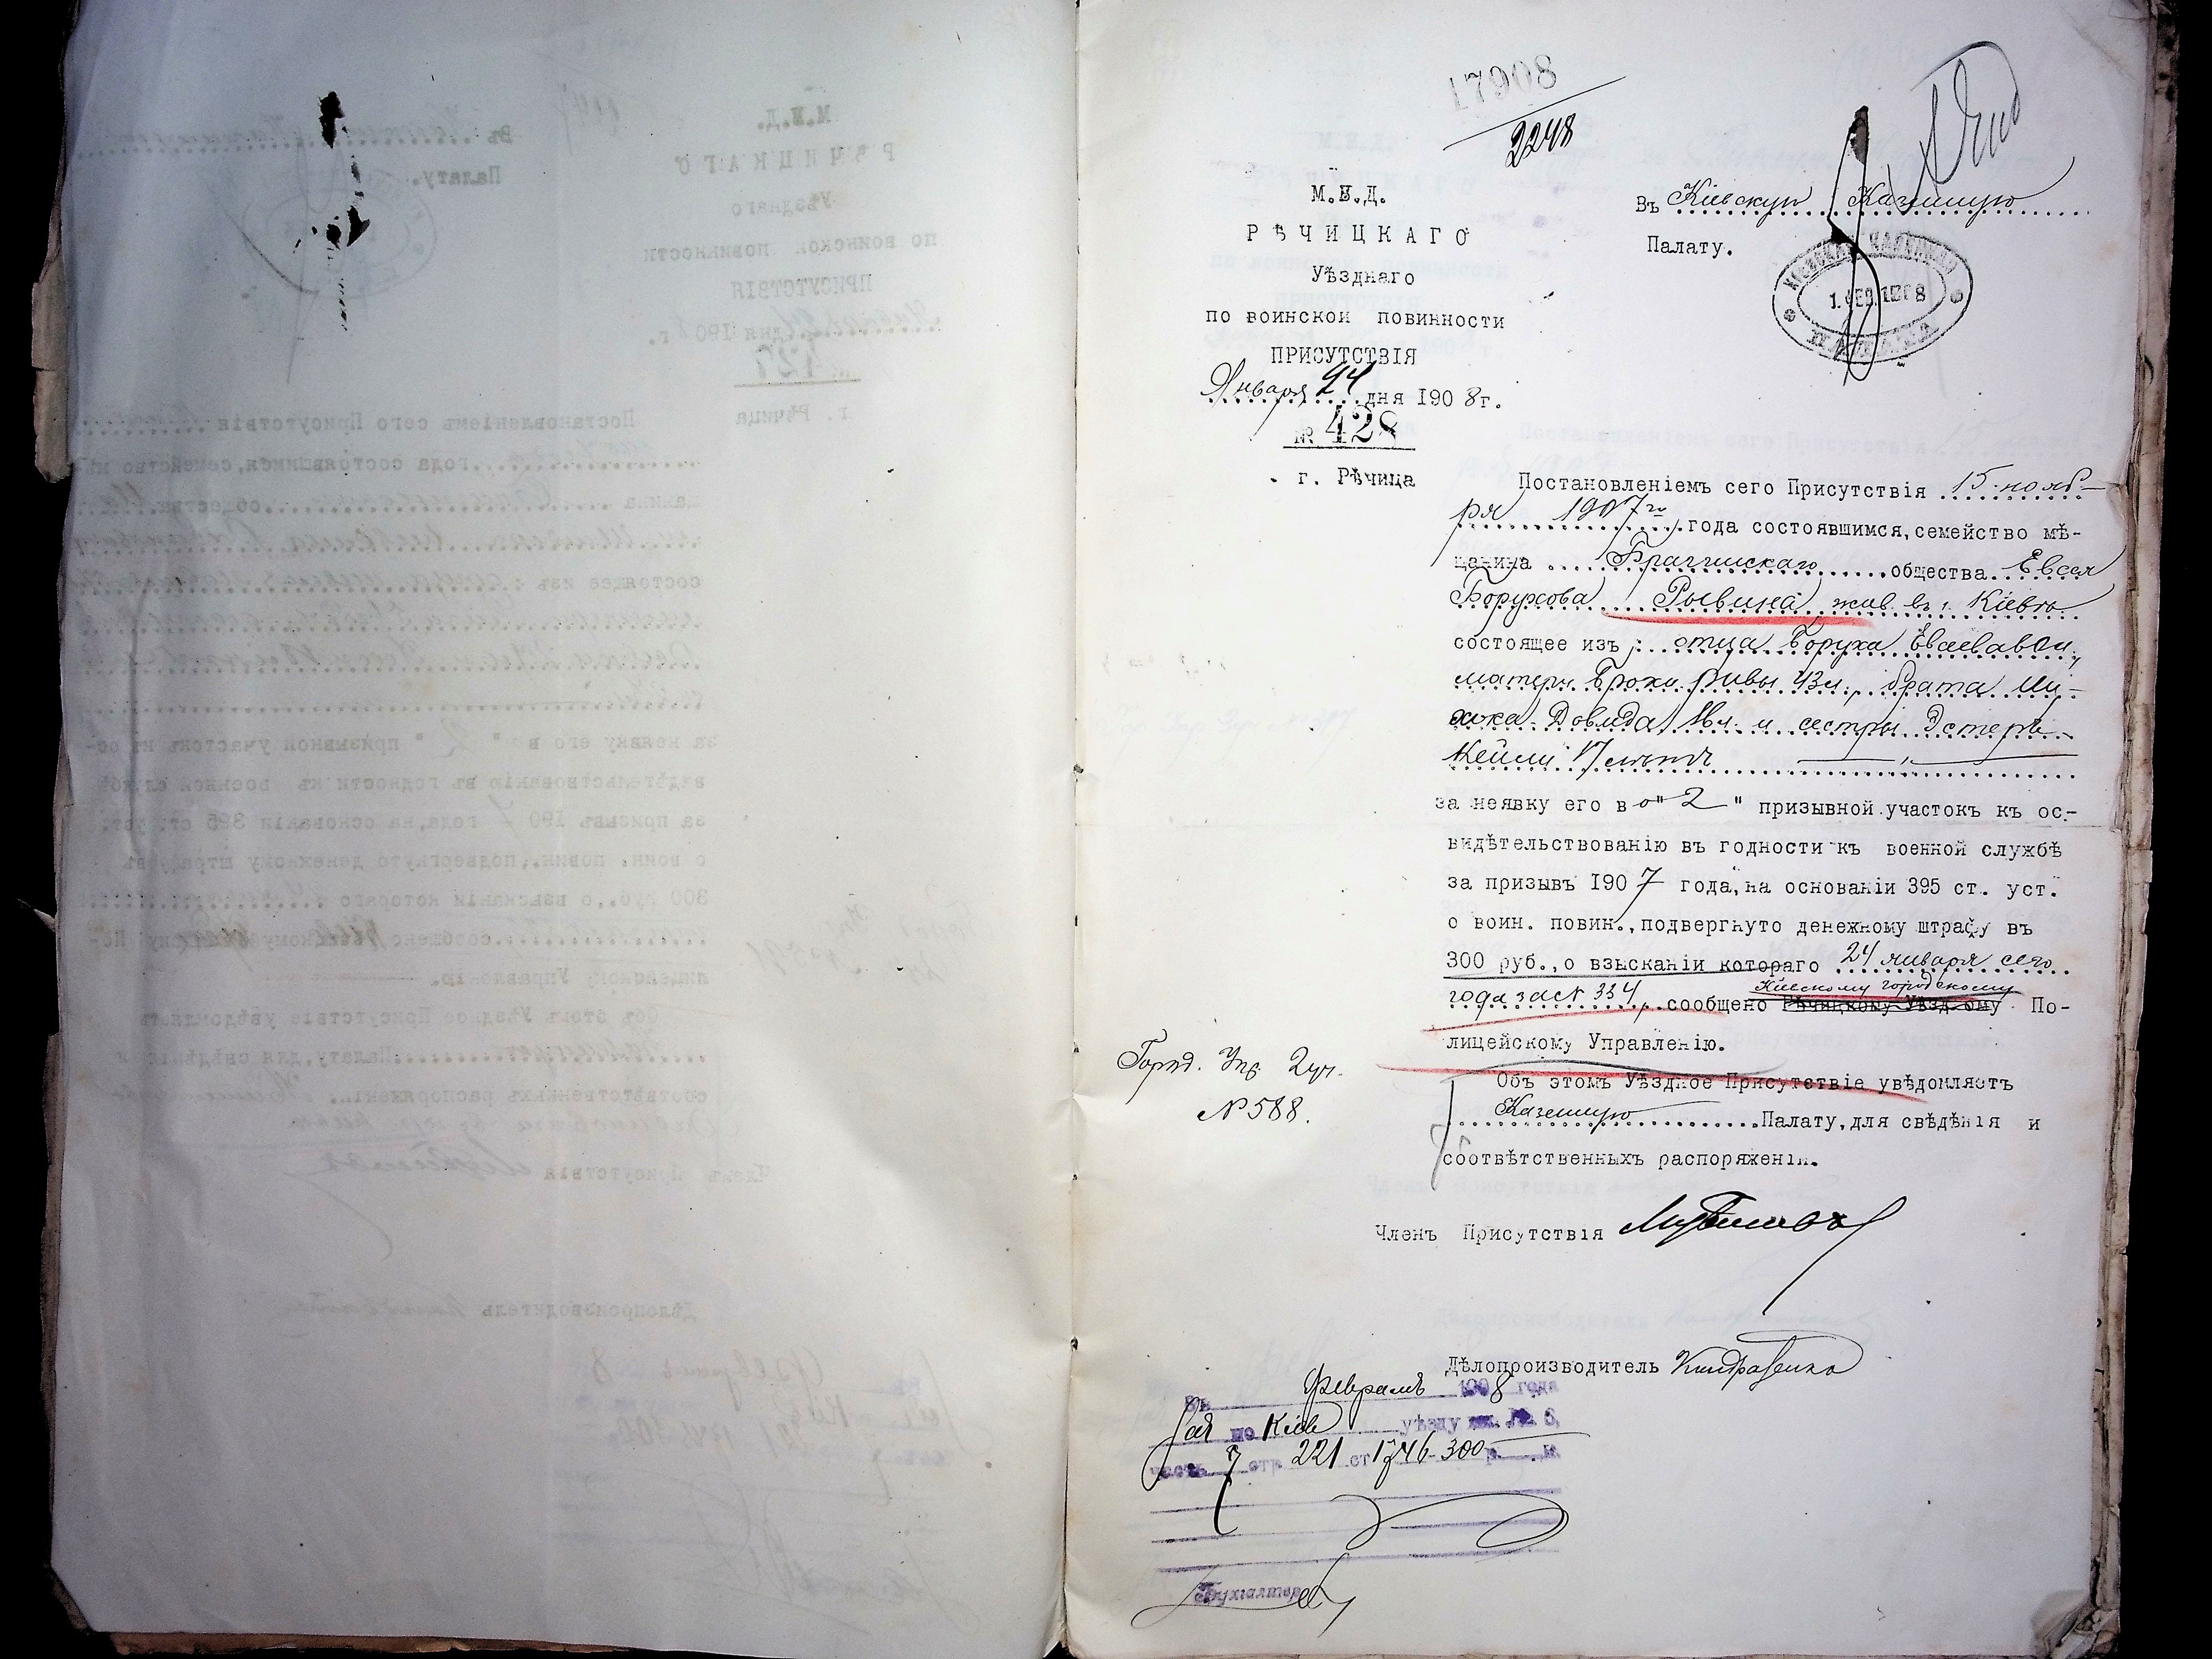 17908
2248
М.В.Д.
РѢЧИЦКАГО
Уѣзднаго
по воинской повинности
ПРИСУТСТВІЯ
Января 24 дня 1908 г.
№ 428
г. Рѣчица
Въ Кіевскую Казенную
Палату.
КІЕВСКАЯ КАЗЕННАЯ
1. ФЕВ. 1908
ПАЛАТА
Постановленіемъ сего Присутствія 15 нояб-
ря 1907 го года состоявшимся, семейство мѣ-
щанина Брагинскаго общества Евсея
Борухова Рывина жив. въ г. Кіевѣ
состоящее изъ: отца Боруха
матери Броки Ривы 43 л., брата
Довида 16 л. и сестры Эстеръ
Кейли
за неявку его въ "2" призывной участокъ къ ос-
видѣтельствованію въ годности къ военной службѣ
за призывъ 1907 года, на основаніи 395 ст. уст.
о воин. повин., подвергнуто денежному штрафу въ
300 руб., о взысканіи котораго 24 января сего
года за № 334 сообщено Рѣчицкому Уѣздному По-
Кіевскому городскому
лицейскому Управленію.
Объ этомъ Уѣздное Присутствіе увѣдомляетъ
Казенную Палату, для свѣдѣнія и
соотвѣтственныхъ распоряженій.
Город. Упр. 2 уч.
№ 588.
Членъ Присутствія
Дѣлопроизводитель
Въ Февралѣ 1908 года
по Кіев уѣзду
часть 7 стр. 221 ст 1746 - 300 р. к.
Бухгалтеръ